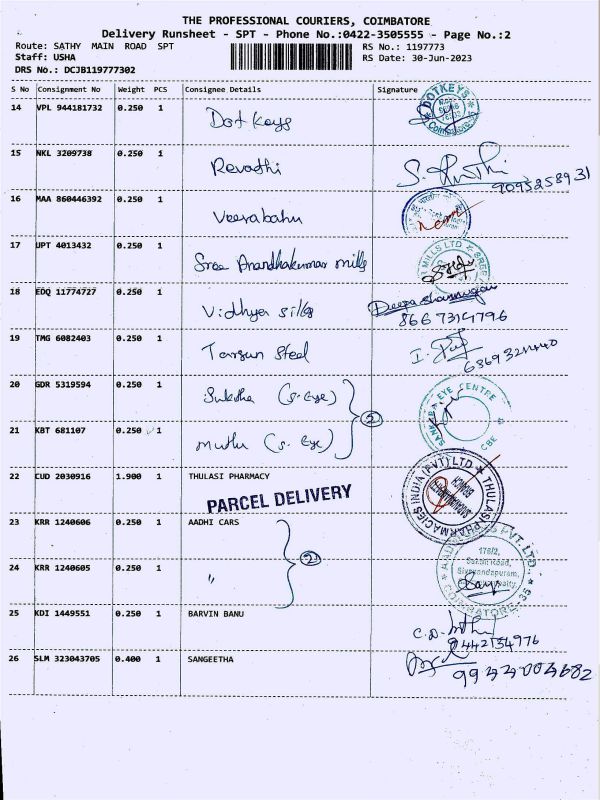 THE PROFESSIONAL COURIERS, COIMBATORE
Delivery Runsheet - SPT - Phone No.:0422-3505555 - Page No.:2
Route: SATHY MAIN ROAD SPT RS No.: 1197773
Staff: USHA RS Date: 30-Jun-2023
DRS No.: DCJB119777302
S No Consignment No Weight PCS Consignee Details Signature
14 VPL 944181732 0.250 1 Dot Keys DOTKEYS Coimbatore
15 NKL 3209738 0.250 1 Revathi 9095258931
16 MAA 860446392 0.250 1 Veerabahu
17 UPT 4013432 0.250 1 Sree Anandhakumar mills MILLS LTD SREE
18 EDQ 11774727 0.250 1 Vidhya silks Deepa Shanmugam
8667314796
19 TMG 6082403 0.250 1 Tarsun Steel
20 GDR 5319594 0.250 1 (S. Eye) EYE CENTRE
2
21 KBT 681107 0.250 1 Muthu (S. Eye) CBE
22 CUD 2030916 1.900 1 THULASI PHARMACY THULASI PHARMACIES INDIA (PVT) LTD
PARCEL DELIVERY
23 KRR 1240606 0.250 1 AADHI CARS PVT. LTD.
2
24 KRR 1240605 0.250 1 " 176/2,
Road,
COIMBATORE-35
25 KDI 1449551 0.250 1 BARVIN BANU
9442134976
26 SLM 323043705 0.400 1 SANGEETHA
9944004682